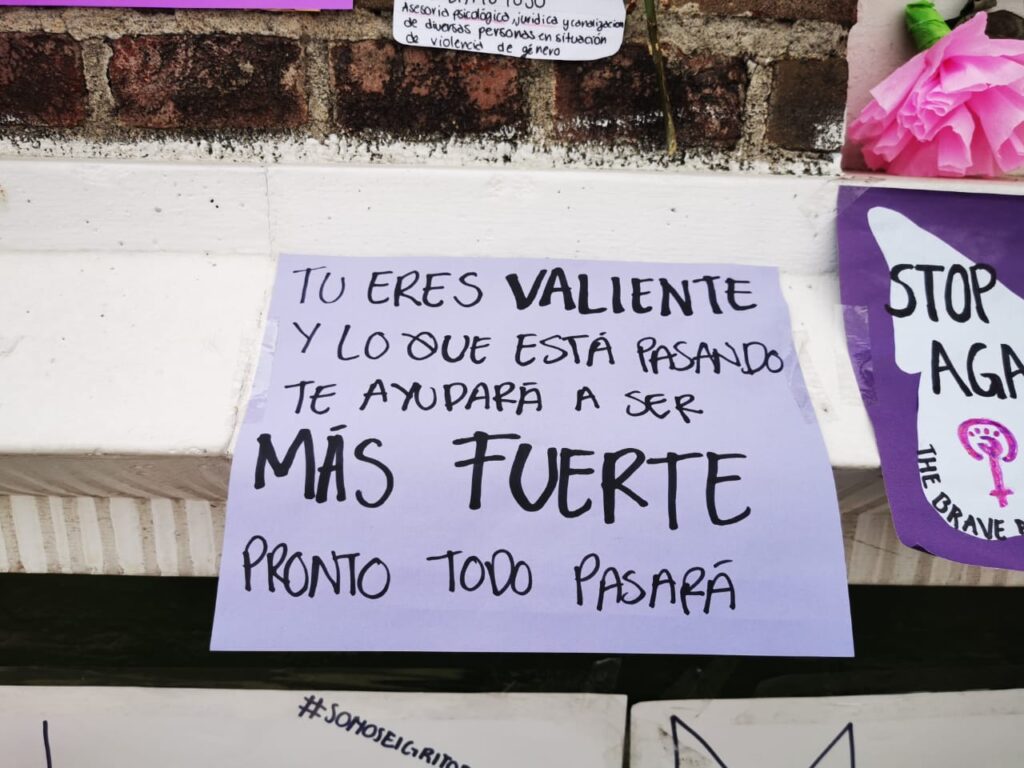 Asesoria psicológica, jurídica y canalización
de diversas personas en situación
de violencia de género
TU ERES VALIENTE
Y LO QUE ESTÁ PASANDO
TE AYUDARÁ A SER
MÁS FUERTE
PRONTO TODO PASARÁ
STOP
AGA
THE BRAVE
#SOMOSELGRITO